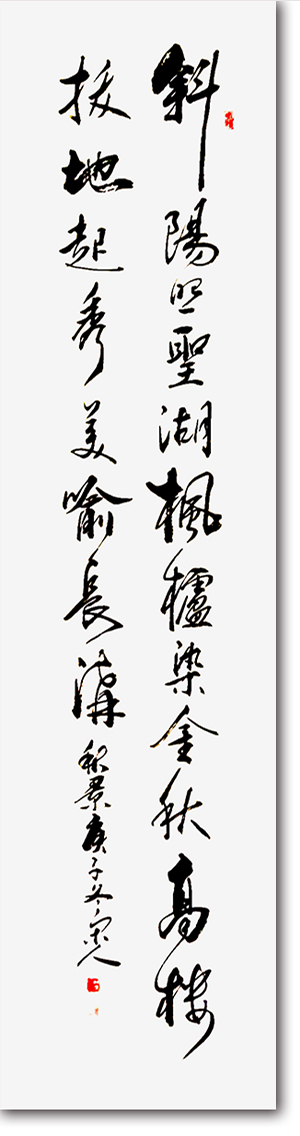 斜陽照聖湖楓櫨染金秋高樓
拔地起秀美喻長溝 秋景庚子冬